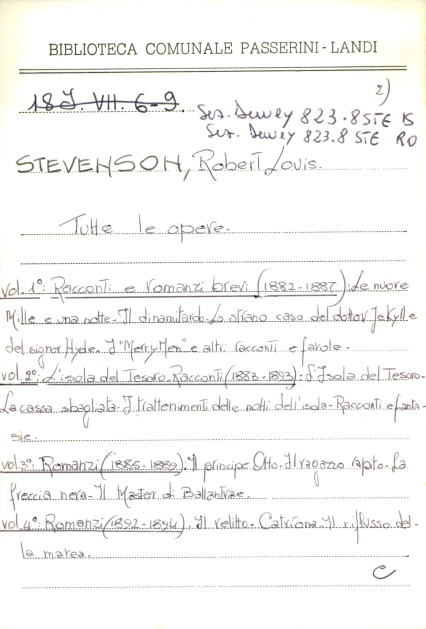 BIBLIOTECA COMUNALE PASSERINI - LANDI
2)
18J. VII. 6-9.
Sez. Dewey 823.8 STE IS
Sez. Dewey 823.8 STE RO
STEVENSON, Robert Louis.
Tutte le opere.
vol. 1º: Racconti e romanzi brevi (1882-1887): Le nuove
Mille e una notte. Il dinamitardo. Lo strano caso del dottor Jekyll e
del signor Hyde. I "Merry Men" e altri racconti e favole.
vol. 2º: L'isola del Tesoro. Racconti (1883-1893): L'Isola del Tesoro.
La cassa sbagliata. I trattenimenti delle notti dell'isola. Racconti e fanta-
sie.
vol. 3º: Romanzi (1885-1889). Il principe Otto. Il ragazzo rapito. La
freccia nera. Il Master di Ballantrae.
vol. 4º: Romanzi (1892-1894). Il relitto. Catriona. Il riflusso del-
la marea.
C